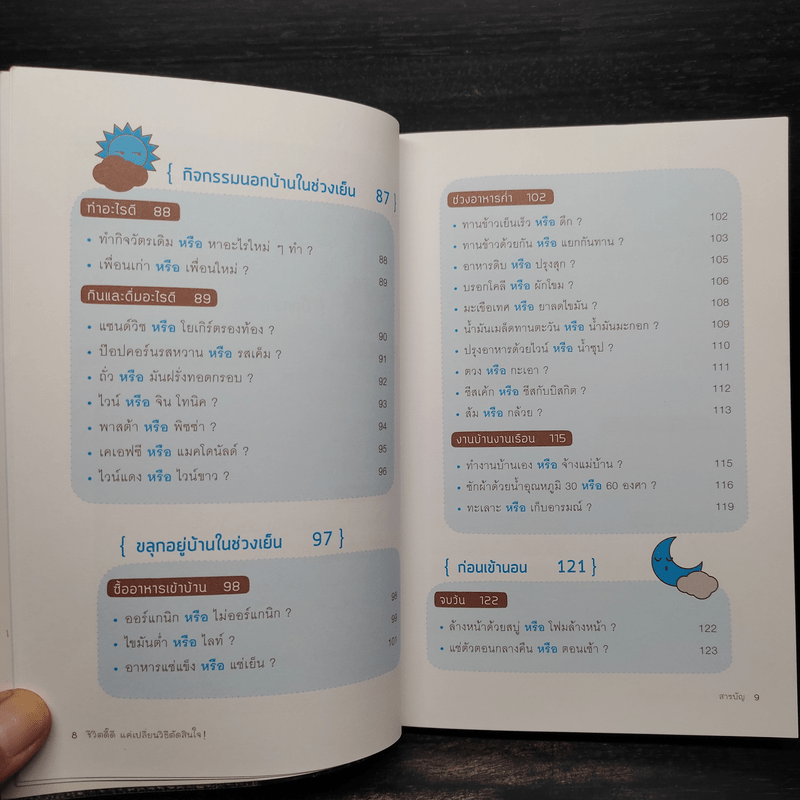 { กิจกรรมนอกบ้านในช่วงเย็น 87 }
ทำอะไรดี 88
• ทำกิจวัตรเดิม หรือ หาอะไรใหม่ ๆ ทำ ? 88
• เพื่อนเก่า หรือ เพื่อนใหม่ ? 89
กินและดื่มอะไรดี 89
• แซนด์วิช หรือ โยเกิร์ตรองท้อง ? 90
• ป๊อปคอร์นรสหวาน หรือ รสเค็ม ? 91
• ถั่ว หรือ มันฝรั่งทอดกรอบ ? 92
• ไวน์ หรือ จิน โทนิค ? 93
• พาสต้า หรือ พิซซ่า ? 94
• เคเอฟซี หรือ แมคโดนัลด์ ? 95
• ไวน์แดง หรือ ไวน์ขาว ? 96
{ ขลุกอยู่บ้านในช่วงเย็น 97 }
ซื้ออาหารเข้าบ้าน 98
• ออร์แกนิก หรือ ไม่ออร์แกนิก ? 98
• ไขมันต่ำ หรือ ไลท์ ? 99
• อาหารแช่แข็ง หรือ แช่เย็น ? 101
8 ชีวิตดี๊ดี แค่เปลี่ยนวิธีตัดสินใจ!
ช่วงอาหารค่ำ 102
• ทานข้าวเย็นเร็ว หรือ ดึก ? 102
• ทานข้าวด้วยกัน หรือ แยกกันทาน ? 103
• อาหารดิบ หรือ ปรุงสุก ? 105
• บรอกโคลี หรือ ผักโขม ? 106
• มะเขือเทศ หรือ ยาลดไขมัน ? 108
• น้ำมันเมล็ดทานตะวัน หรือ น้ำมันมะกอก ? 109
• ปรุงอาหารด้วยไวน์ หรือ น้ำซุป ? 110
• ตวง หรือ กะเอา ? 111
• ชีสเค้ก หรือ ชีสกับบิสกิต ? 112
• ส้ม หรือ กล้วย ? 113
งานบ้านงานเรือน 115
• ทำงานบ้านเอง หรือ จ้างแม่บ้าน ? 115
• ซักผ้าด้วยน้ำอุณหภูมิ 30 หรือ 60 องศา ? 116
• ทะเลาะ หรือ เก็บอารมณ์ ? 119
{ ก่อนเข้านอน 121 }
จบวัน 122
• ล้างหน้าด้วยสบู่ หรือ โฟมล้างหน้า ? 122
• แช่ตัวตอนกลางคืน หรือ ตอนเช้า ? 123
สารบัญ 9